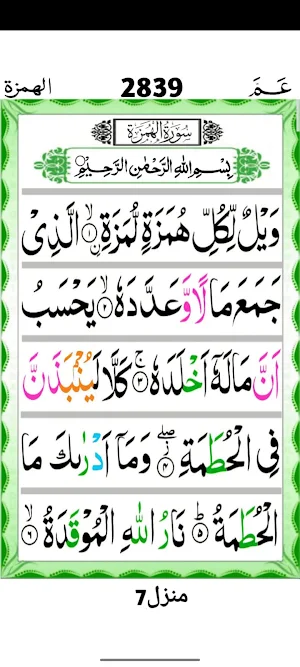 الهمزة 2839 عَمَّ
سُورَةُ الْهُمَزَة
بِسْمِ اللهِ الرَّحْمٰنِ الرَّحِيْمِ
وَيْلٌ لِّكُلِّ هُمَزَةٍ لُّمَزَةِ ۙ﴿۱﴾ الَّذِىْ
جَمَعَ مَالًا وَّ عَدَّدَهٗ ۙ﴿۲﴾ يَحْسَبُ
اَنَّ مَالَهٗۤ اَخْلَدَهٗ ۚ﴿۳﴾ كَلَّا لَيُنْۢبَذَنَّ
فِى الْحُطَمَةِ ۖ﴿۴﴾ وَمَاۤ اَدْرٰىكَ مَا
الْحُطَمَةُ ؕ﴿۵﴾ نَارُ اللّٰهِ الْمُوْقَدَةُ ۙ﴿۶﴾
منزل7